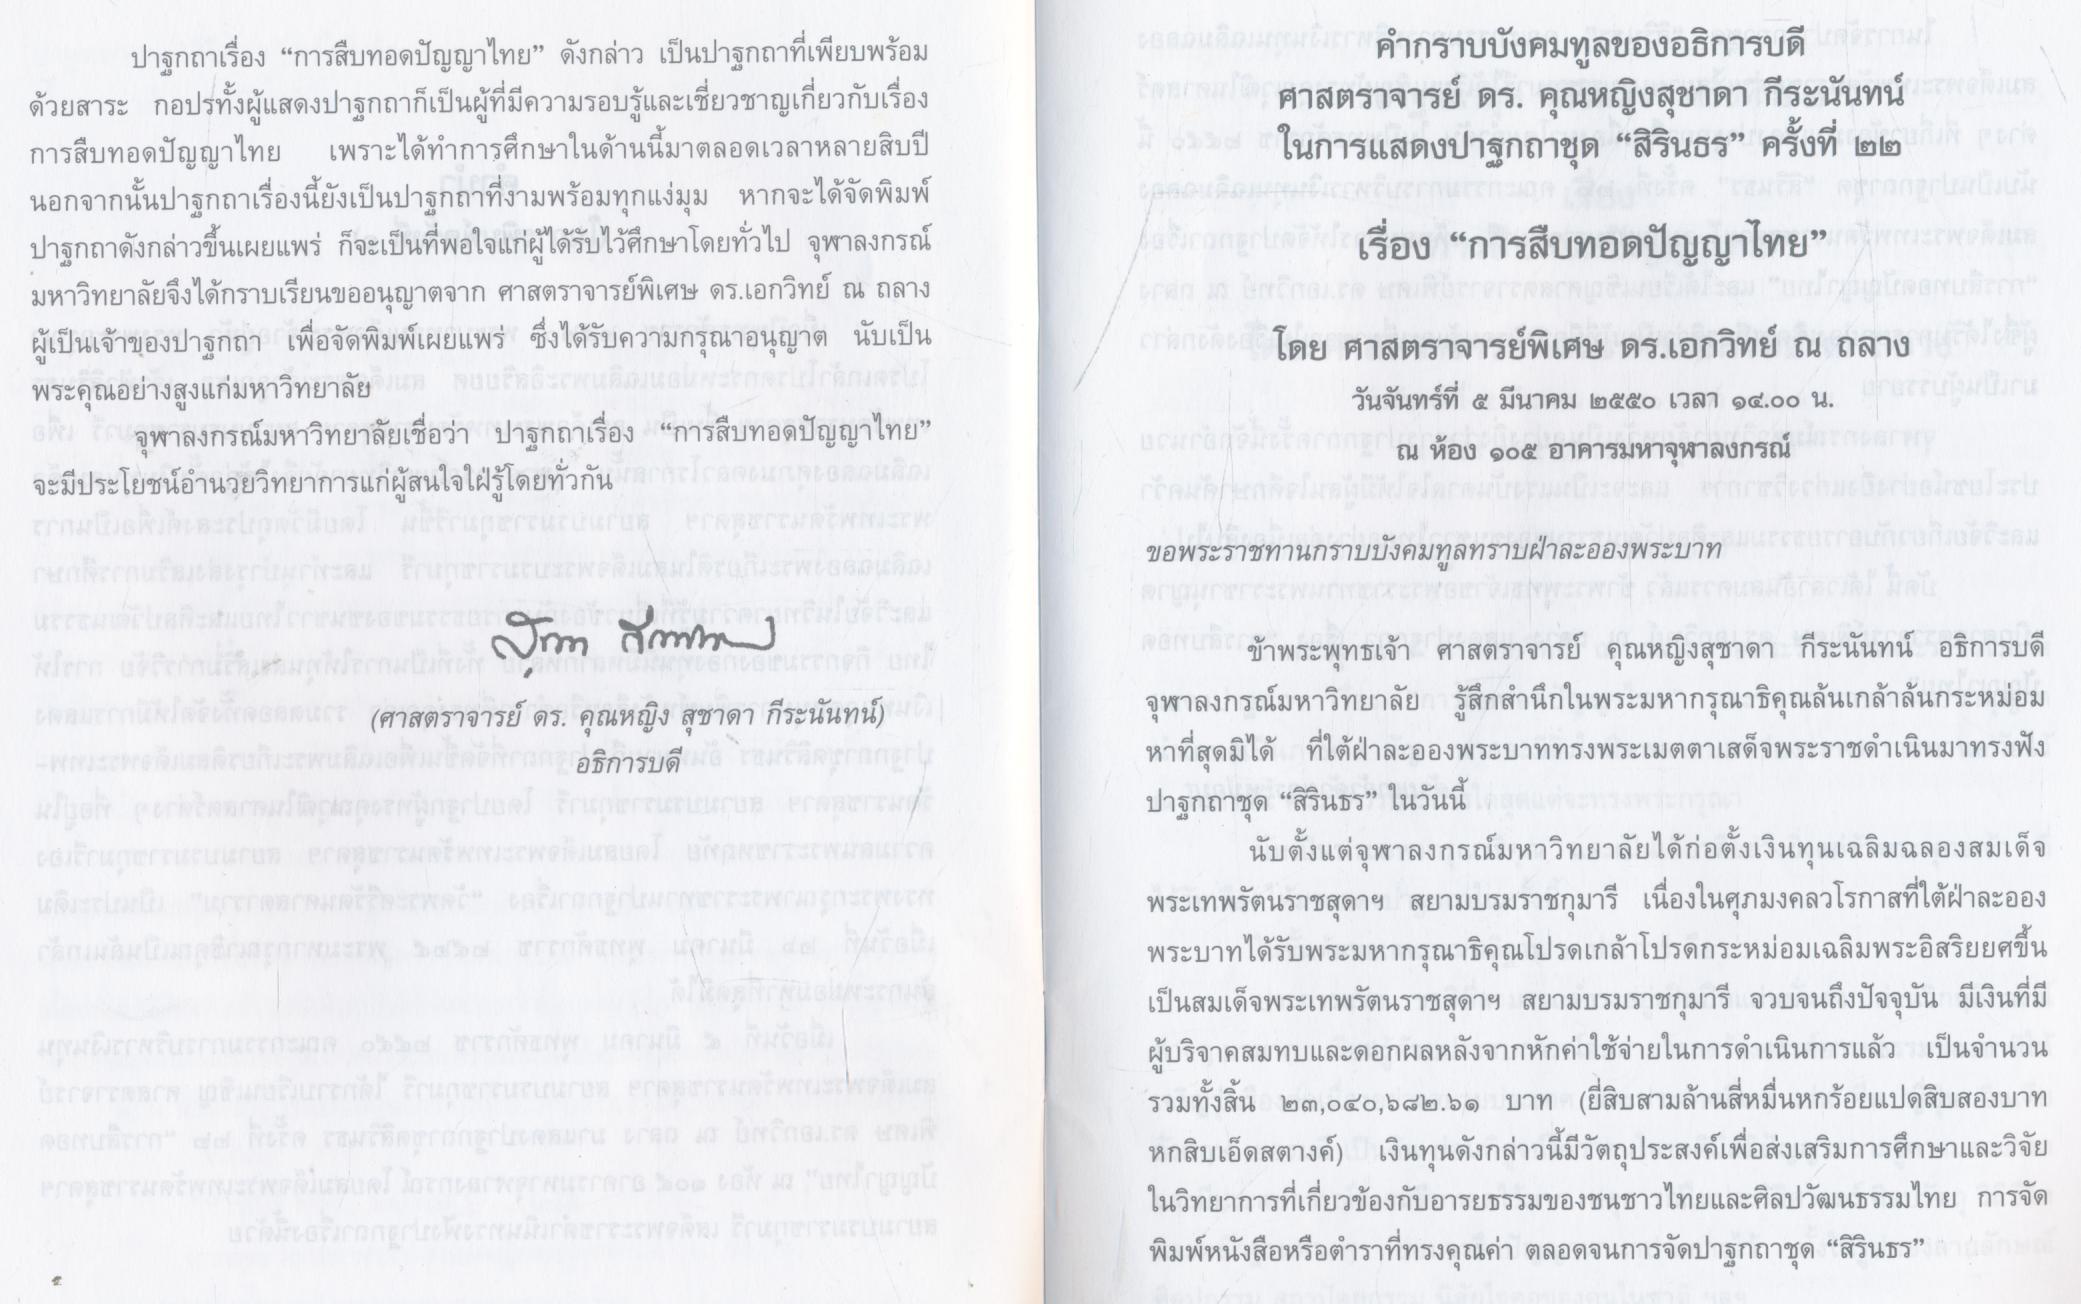 ปาฐกถาเรื่อง “การสืบทอดปัญญาไทย” ดังกล่าว เป็นปาฐกถาที่เพียบพร้อม
ด้วยสาระ กอปรทั้งผู้แสดงปาฐกถาก็เป็นผู้ที่มีความรอบรู้และเชี่ยวชาญเกี่ยวกับเรื่อง
การสืบทอดปัญญาไทย เพราะได้ทำการศึกษาในด้านนี้มาตลอดเวลาหลายสิบปี
นอกจากนั้นปาฐกถาเรื่องนี้ยังเป็นปาฐกถาที่งามพร้อมทุกแง่มุม หากจะได้จัดพิมพ์
ปาฐกถาดังกล่าวขึ้นเผยแพร่ ก็จะเป็นที่พอใจแก่ผู้ได้รับไว้ศึกษาโดยทั่วไป จุฬาลงกรณ์
มหาวิทยาลัยจึงได้กราบเรียนขออนุญาตจาก ศาสตราจารย์พิเศษ ดร.เอกวิทย์ ณ ถลาง
ผู้เป็นเจ้าของปาฐกถา เพื่อจัดพิมพ์เผยแพร่ ซึ่งได้รับความกรุณาอนุญาต นับเป็น
พระคุณอย่างสูงแก่มหาวิทยาลัย
จุฬาลงกรณ์มหาวิทยาลัยเชื่อว่า ปาฐกถาเรื่อง “การสืบทอดปัญญาไทย”
จะมีประโยชน์อำนวยวิทยาการแก่ผู้สนใจใฝ่รู้โดยทั่วกัน
สุชาดา กีระนันทน์
(ศาสตราจารย์ ดร. คุณหญิง สุชาดา กีระนันทน์)
อธิการบดี
คำกราบบังคมทูลของอธิการบดี
ศาสตราจารย์ ดร. คุณหญิงสุชาดา กีระนันทน์
ในการแสดงปาฐกถาชุด “สิรินธร” ครั้งที่ ๒๒
เรื่อง “การสืบทอดปัญญาไทย”
โดย ศาสตราจารย์พิเศษ ดร.เอกวิทย์ ณ ถลาง
วันจันทร์ที่ ๕ มีนาคม ๒๕๕๐ เวลา ๑๔.๐๐ น.
ณ ห้อง ๑๐๕ อาคารมหาจุฬาลงกรณ์
ขอพระราชทานกราบบังคมทูลทราบฝ่าละอองพระบาท
ข้าพระพุทธเจ้า ศาสตราจารย์ คุณหญิงสุชาดา กีระนันทน์ อธิการบดี
จุฬาลงกรณ์มหาวิทยาลัย รู้สึกสำนึกในพระมหากรุณาธิคุณล้นเกล้าล้นกระหม่อม
หาที่สุดมิได้ ที่ใต้ฝ่าละอองพระบาททรงพระเมตตาเสด็จพระราชดำเนินมาทรงฟัง
ปาฐกถาชุด “สิรินธร” ในวันนี้
นับตั้งแต่จุฬาลงกรณ์มหาวิทยาลัยได้ก่อตั้งเงินทุนเฉลิมฉลองสมเด็จ
พระเทพรัตนราชสุดาฯ สยามบรมราชกุมารี เนื่องในศุภมงคลวโรกาสที่ใต้ฝ่าละออง
พระบาทได้รับพระมหากรุณาธิคุณโปรดเกล้าโปรดกระหม่อมเฉลิมพระอิสริยยศขึ้น
เป็นสมเด็จพระเทพรัตนราชสุดาฯ สยามบรมราชกุมารี จวบจนถึงปัจจุบัน มีเงินที่มี
ผู้บริจาคสมทบและดอกผลหลังจากหักค่าใช้จ่ายในการดำเนินการแล้ว เป็นจำนวน
รวมทั้งสิ้น ๒๓,๐๔๐,๖๘๒.๖๑ บาท (ยี่สิบสามล้านสี่หมื่นหกร้อยแปดสิบสองบาท
หกสิบเอ็ดสตางค์) เงินทุนดังกล่าวนี้มีวัตถุประสงค์เพื่อส่งเสริมการศึกษาและวิจัย
ในวิทยาการที่เกี่ยวข้องกับอารยธรรมของชนชาวไทยและศิลปวัฒนธรรมไทย การจัด
พิมพ์หนังสือหรือตำราที่ทรงคุณค่า ตลอดจนการจัดปาฐกถาชุด “สิรินธร”